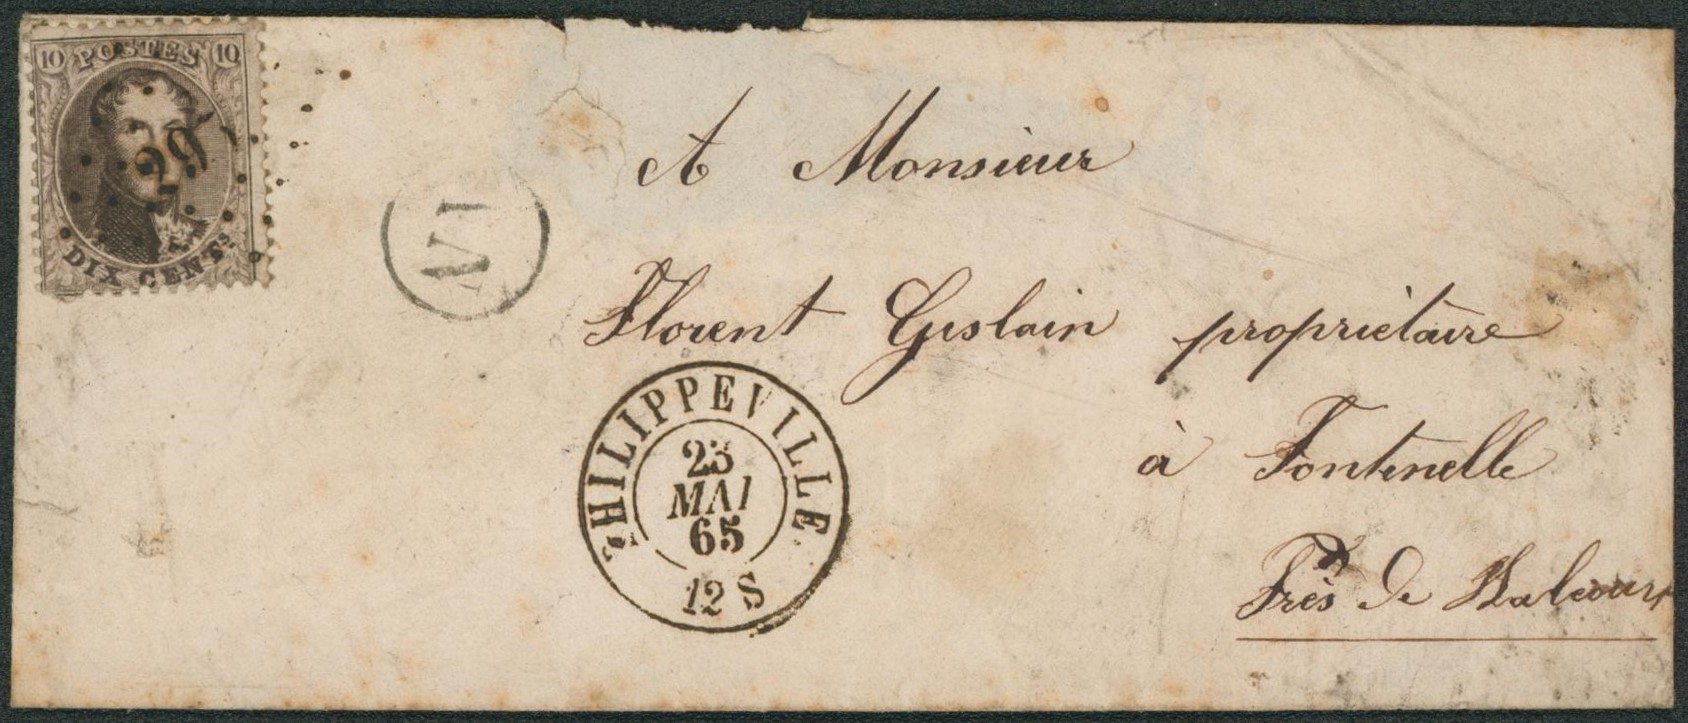 10 POSTES 10
DIX CENTS
A Monsieur
Florent Gislain propriétaire
à Fontenelle
Près de Walcourt
PHILIPPEVILLE
23
MAI
65
12 S